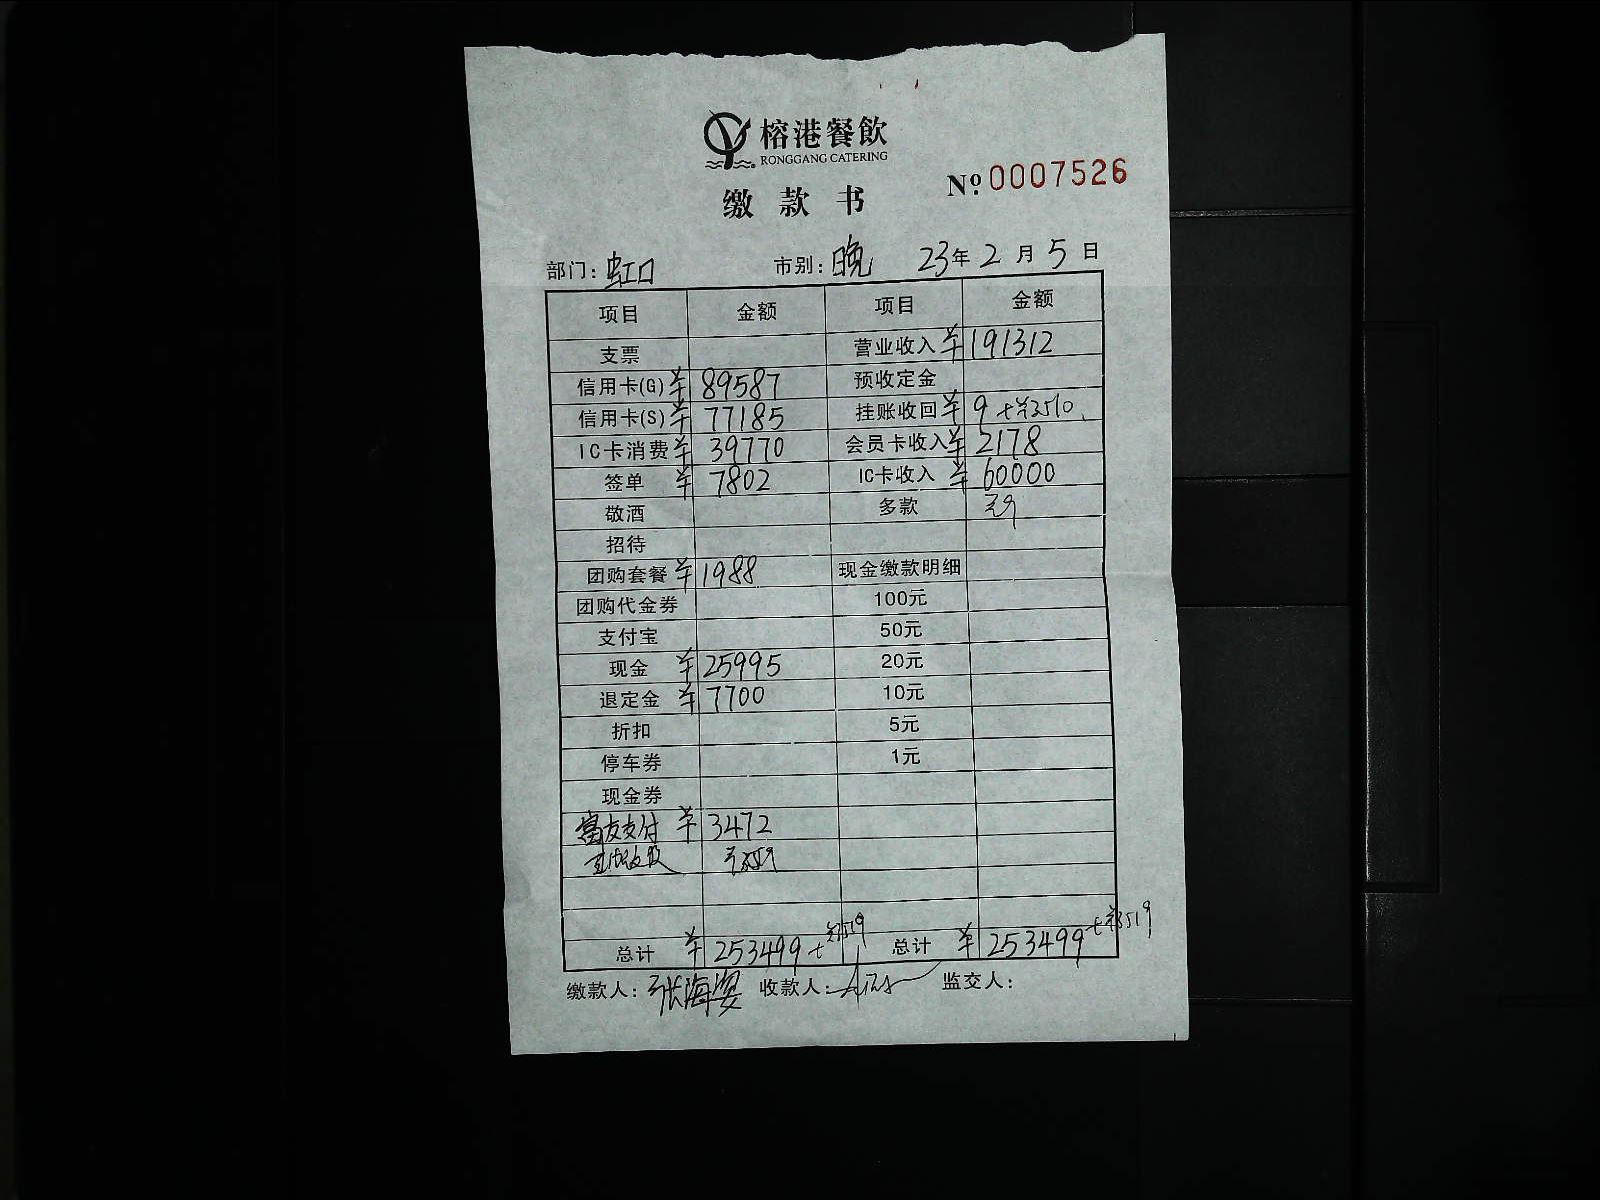 榕港餐飲
RONGGANG CATERING
缴款书
№ 0007526
部门: 虹口 市别: 晚 23年2月5日
项目 金额 项目 金额
支票 营业收入 ¥191312
信用卡(G) ¥89587 预收定金
信用卡(S) ¥77185 挂账收回 ¥9
IC卡消费 ¥39770 会员卡收入 ¥2178
签单 ¥7802 IC卡收入 ¥60000
敬酒 多款
招待
团购套餐 ¥1988 现金缴款明细
团购代金券 100元
支付宝 50元
现金 ¥25995 20元
退定金 ¥7700 10元
折扣 5元
停车券 1元
现金券
富友支付 ¥3472
总计 ¥253499 总计 ¥253499
缴款人: 张海晏 收款人: 监交人: